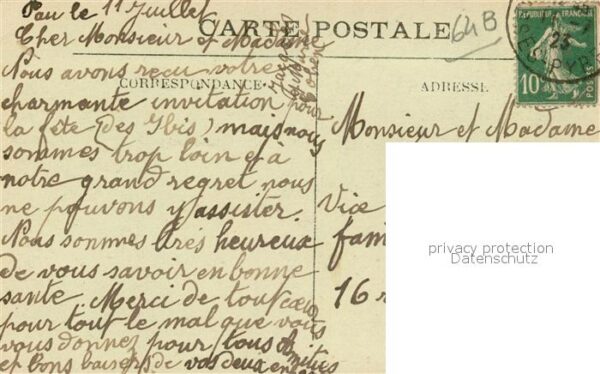 Pau le 11 Juillet
CARTE POSTALE
64B
Cher Monsieur et Madame
Nous avons reçu votre
CORRESPONDANCE
ADRESSE
charmante invitation pour
la fête (des Ibis) mais nous
sommes trop loin et à
notre grand regret nous
ne pouvons y assister.
Nous sommes très heureux
de vous savoir en bonne
santé. Merci de tout cœur
pour tout le mal que vous
vous donnez pour tous amitiés
et bons baisers de vos deux
Monsieur et Madame
Vice
fam
16
10
POSTES
privacy protection
Datenschutz